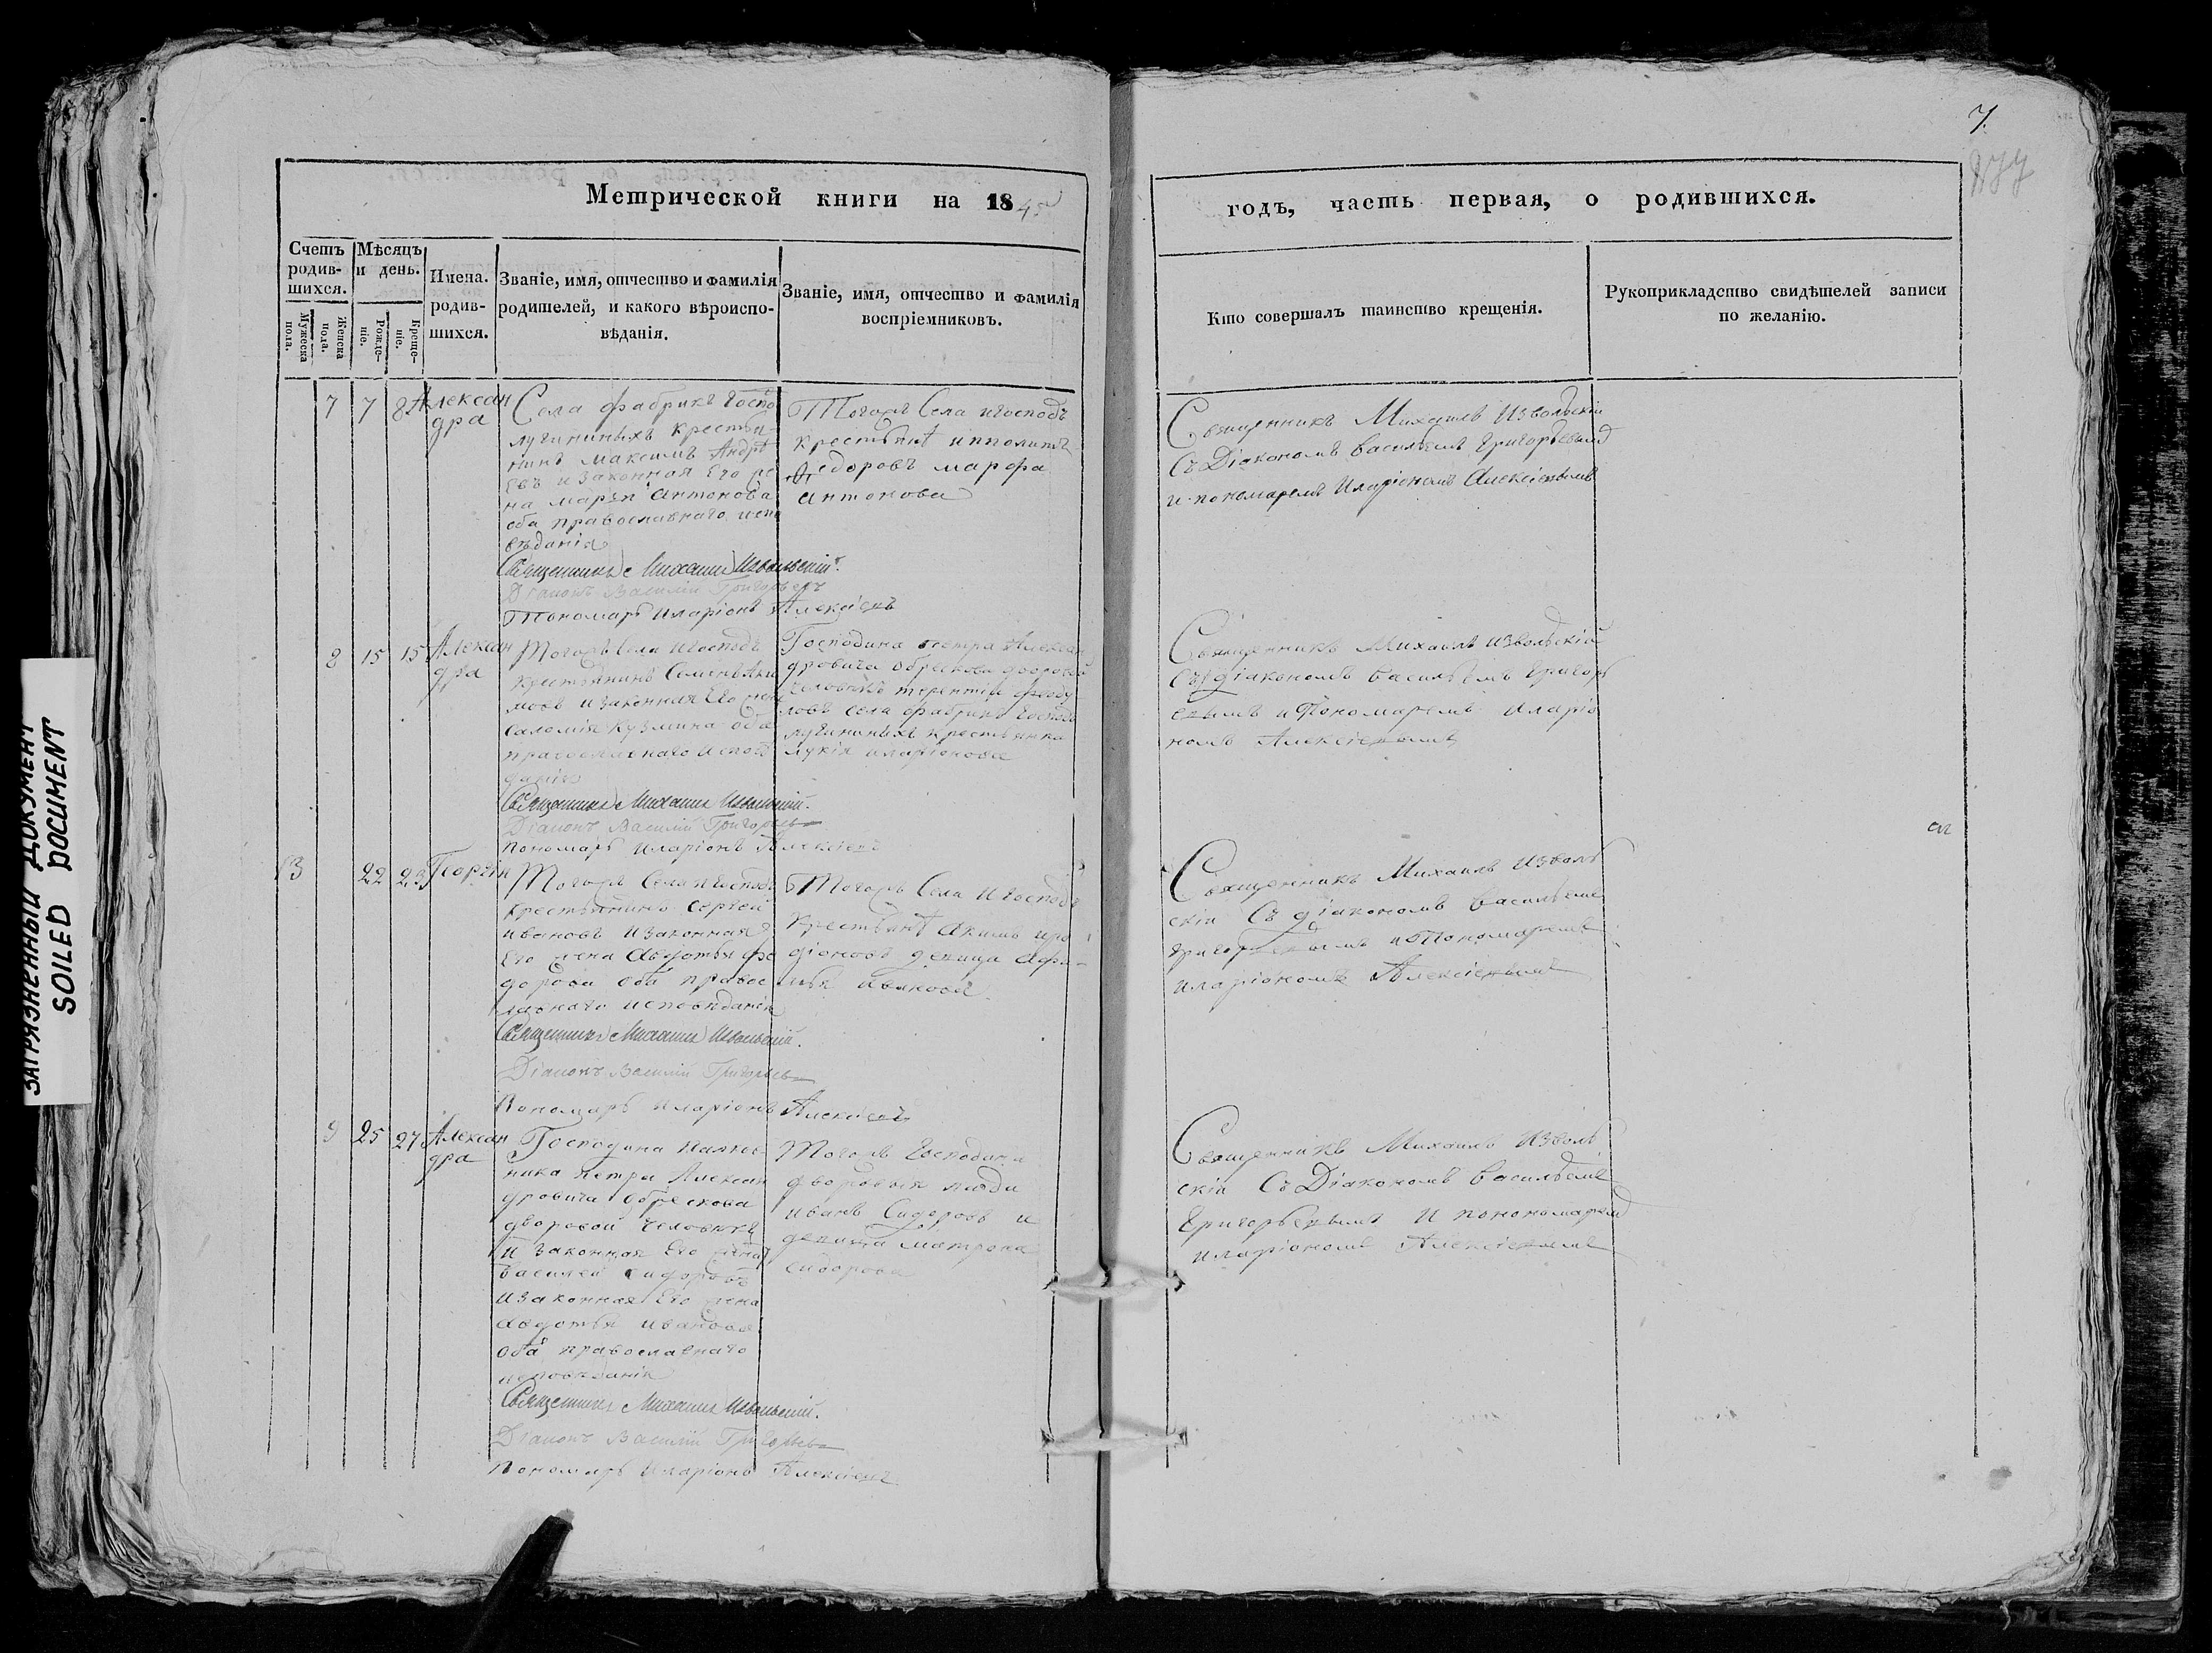 7.
Метрической книги на 1845
годъ, часть первая, о родившихся.
Счетъ родив-шихся.
Мужеска пола.
Женска пола.
Мѣсяцъ и день.
Рожде-ніе.
Креще-ніе.
Имена. родив-шихся.
Званіе, имя, отчество и фамилія
родителей, и какого вѣроиспо-
вѣданія.
Званіе, имя, отчество и фамилія
воспріемниковъ.
Кто совершалъ таинство крещенія.
Рукоприкладство свидѣтелей записи
по желанію.
7 7 8 Алексан
дра
Села фабрикъ Госпо
лугининыхъ крестья
нинъ Максимъ Андрѣ
евъ и законная Его же
на Антонова
оба православнаго испо
вѣданія
Священникъ Михаилъ Извольскій.
Діаконъ Василій Григорьевъ
Пономарь Иларіонъ Алексіевъ
Тогожъ Села и Господъ
крестьянѣ ипполитъ
Федоровъ марфа
антонова
Священникъ Михаилъ Извольскій
Съ Діакономъ Василіемъ Григорьевымъ
и пономаремъ Иларіономъ Алексіевымъ
8 15 15 Алексан
дра
Тогожъ Села и Господъ
крестьянинъ Семенъ Аки
мовъ и законная Его жена
Саломія Кузмина оба
православнаго исповѣ
данія
Священникъ Михаилъ Извольскій.
Діаконъ Василій Григорьевъ
Пономарь Иларіонъ Алексіевъ
Господина петра Алексан
дровича обрескова дворовой
человѣкъ терентій феоду
ловъ села фабрикъ Господъ
лугининыхъ крестьянка
лукія иларіонова
Священникъ Михаилъ Извольскій
Съ діакономъ Василіемъ Григорь
евымъ и Пономаремъ Иларіо
номъ Алексіевымъ
13 22 23 Георгій
Тогожъ Села и Господъ
крестьянинъ Сергей
ивановъ и законная
Его жена Авдотья фе
дорова оба правос
лавнаго исповѣданія
Священникъ Михаилъ Извольскій.
Діаконъ Василій Григорьевъ
Пономарь Иларіонъ Алексіевъ
Тогожъ Села и Господъ
крестьянѣ Акимъ иро
діоновъ девица Афи-
мья
Священникъ Михаилъ Изволь
скій Съ діакономъ Василіемъ
Григорьевымъ и Пономаремъ
иларіономъ Алексіевымъ
9 25 27 Алексан
дра
Господина
ника петра Алексан
дровича обрескова
дворовой человѣкъ
и законная Его жена
Василей сидоровъ
и законная Его жена
авдотья иванова
оба православнаго
исповѣданія
Священникъ Михаилъ Извольскій.
Діаконъ Василій Григорьевъ
Пономарь Иларіонъ Алексіевъ
Тогожъ Господина
дворовыя люди
иванъ Сидоровъ и
девица матрона
сидорова
Священникъ Михаилъ Изволь
скій Съ Діакономъ Василіемъ
Григорьевымъ и понономаремъ
иларіономъ Алексіевымъ
ЗАГРЯЗНЕННЫЙ ДОКУМЕНТ
SOILED DOCUMENT